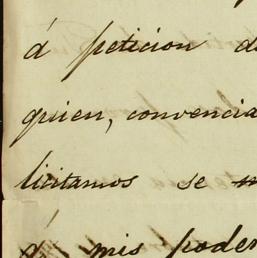 á peticion d
quien, convencia
licitamos se
á mis poder